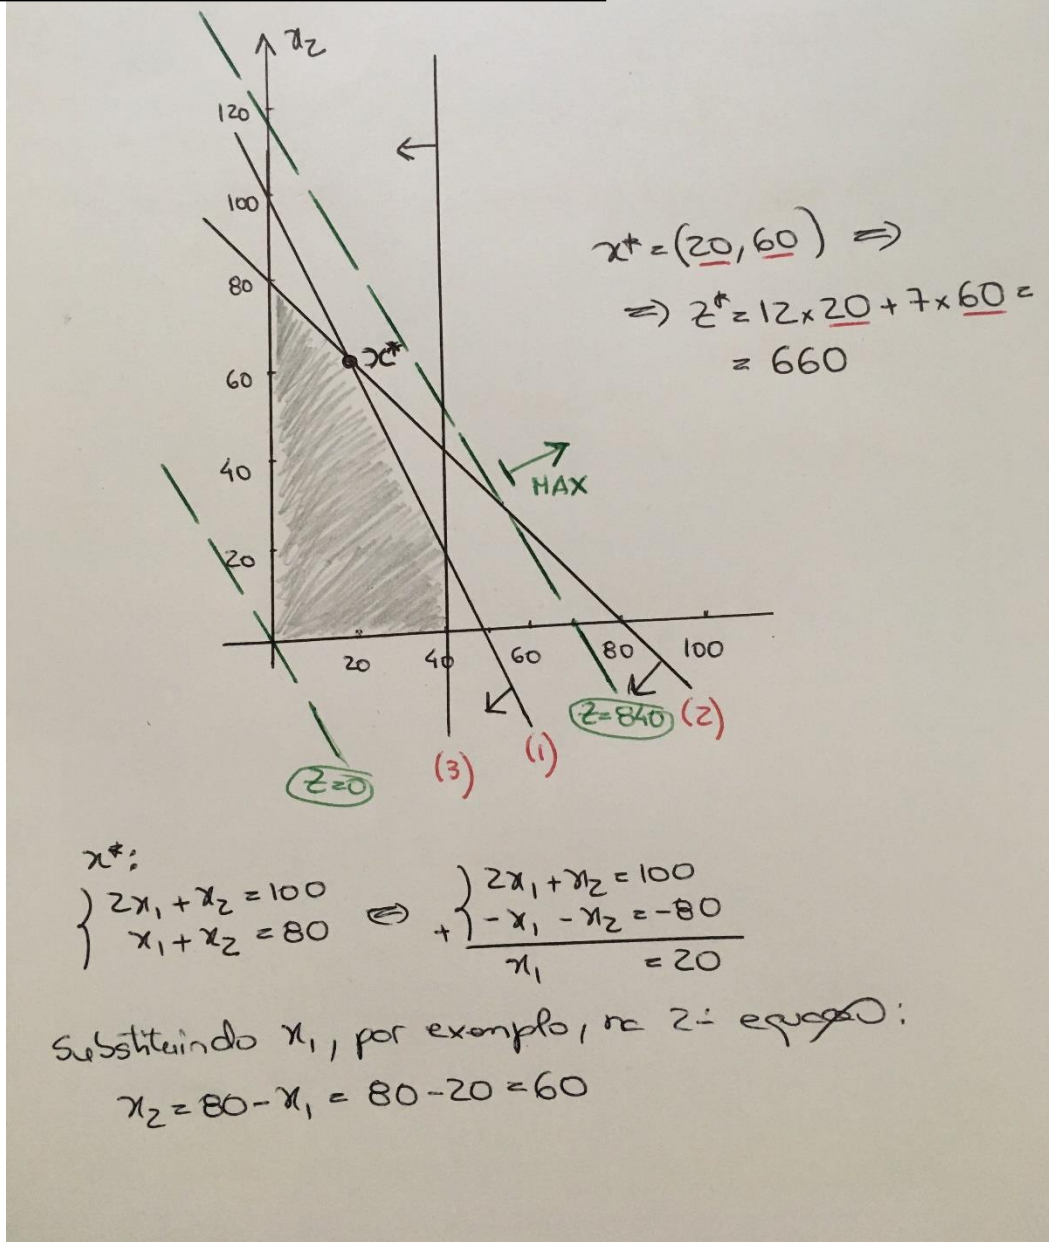 x₂
120
100
80
60
40
20
20 40 60 80 100
x*
MAX
Z=0
(3)
(1)
Z=840
(2)
x* = (20, 60) ⇒
⇒ Z* = 12 × 20 + 7 × 60 =
= 660
x*:
{ 2x₁ + x₂ = 100 ⇔ { 2x₁ + x₂ = 100
x₁ + x₂ = 80 + -x₁ - x₂ = -80
x₁ = 20
Substituindo x₁, por exemplo, na 2ª equação:
x₂ = 80 - x₁ = 80 - 20 = 60